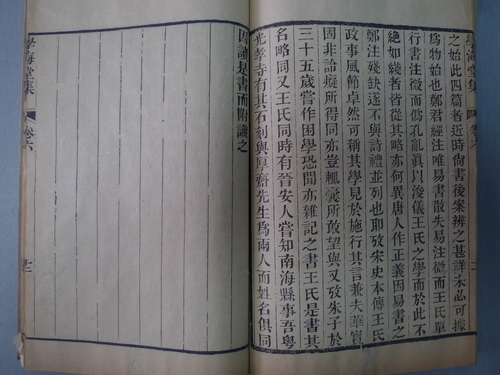 學海堂集
卷六
之始此四篇者近時尙書後案辨之甚詳未必可據
爲物始也鄭君經注唯易書散失易注微而王氏單
行書注微而僞孔亂眞以浚儀王氏之學而於此不
絶如綫者皆從其略亦何異唐人作正義因易書之
鄭注殘缺遂不與詩禮並列也耶攷宋史本傳王氏
政事風節卓然可稱其學見於施行其言兼夫華實
因非論癡所得同亦豈所敢望與又攷朱子於
三十五歲嘗作困學恐聞亦雜記之書王氏是書其
名略同又王氏同時有晉安人嘗知南海縣事吾粤
光孝寺有其石刻與厚齋先生爲兩人而姓名俱同
因論是書而附識之
學海堂集
卷六